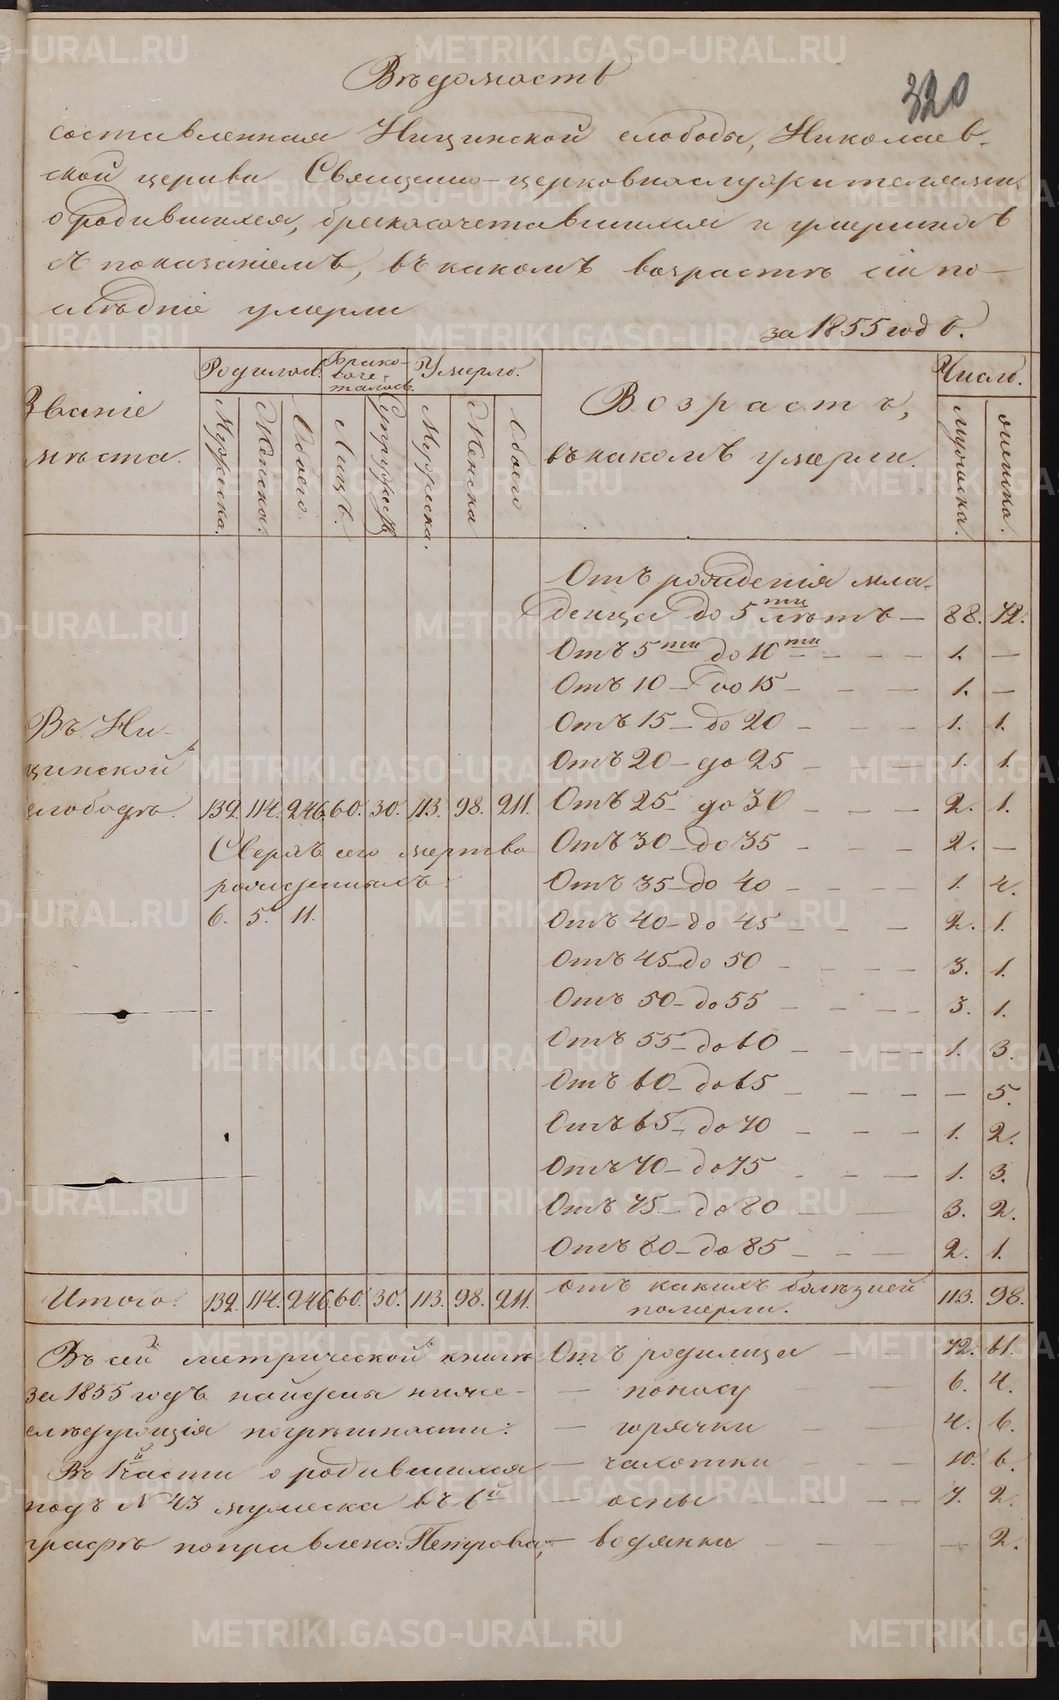 320
Вѣдомость
составленная Ницинской слободы, Николаев-
ской церкви Священно-церковнослужителями
о родившихся, бракосочетавшихся и умершихъ
съ показаніемъ, въ какомъ возрастѣ сіи по-
слѣдніе умерли
за 1855 годъ.
Званіе
мѣста.
Родилось.
Брако-
соче-
талось.
Умерло.
Возрастъ,
въ какомъ умерли.
Число.
Мужеска.
Женска.
Обоего.
Лицъ.
Супружествъ
Мужеска.
Женска
Обоего
мужеска.
женска.
Отъ рожденія мла-
денца до 5ти лѣтъ — 88. 72.
Отъ 5ти до 10ти — — — 1. —
Отъ 10 — до 15 — — — 1. —
Отъ 15 — до 20 — — — 1. 1.
Отъ 20 — до 25 — — — 1. 1.
Отъ 25 — до 30 — — — 2. 1.
Отъ 30 — до 35 — — — 2. —
Отъ 35 — до 40 — — — 1. 4.
Отъ 40 — до 45 — — — 2. 1.
Отъ 45 — до 50 — — — 3. 1.
Отъ 50 — до 55 — — — 3. 1.
Отъ 55 — до 60 — — — 1. 3.
Отъ 60 — до 65 — — — — 5.
Отъ 65 — до 70 — — — 1. 2.
Отъ 70 — до 75 — — — 1. 3.
Отъ 75 — до 80 — — 3. 2.
Отъ 80 — до 85 — — — 2. 1.
Въ Ни-
цинской
слободѣ. 132. 114. 246. 60. 30. 113. 98. 211.
Сверхъ сего мертво
рожденныхъ:
6. 5. 11.
Итого: 132. 114. 246. 60. 30. 113. 98. 211.
отъ какихъ болѣзней
померли. 113. 98.
Отъ родимца — 72. 61.
— поносу — 6. 4.
— горячки — — 4. 6.
— чахотки — — 10. 6.
— оспы — — — 7. 2.
— водянки — — — — 2.
Въ сей метрической книгѣ
за 1855 годъ найдены ниже-
слѣдующія погрѣшности:
Въ 1й части о родившихся
подъ № 43 мужеска въ 6й
графѣ поправлено: Петрова;
METRIKI.GASO-URAL.RU